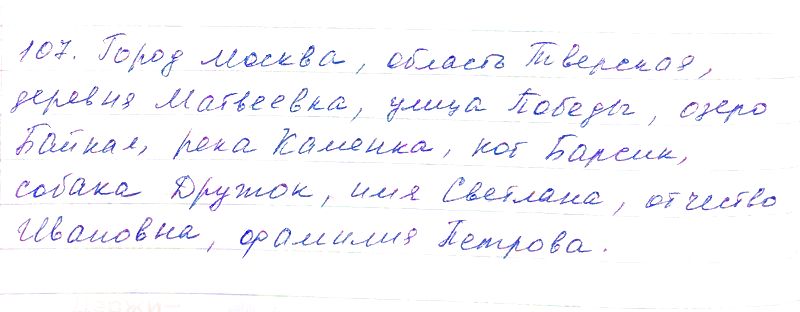 107. Город Москва, область Тверская,
деревня Матвеевка, улица Победы, озеро
Байкал, река Каменка, кот Барсик,
собака Дружок, имя Светлана, отчество
Ивановна, фамилия Петрова.